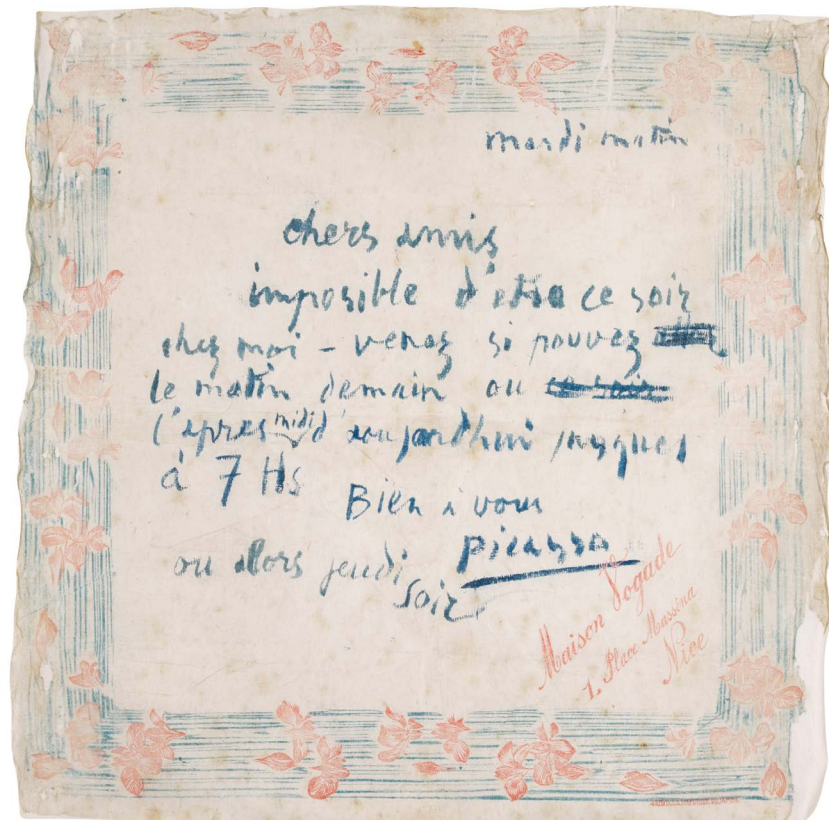 mardi matin
chers amis
imposible d'etre ce soir
chez moi - venez si pouvez
le matin demain ou ce soir
l'apres midi d'aujourdhui jusques
à 7 Hs
Bien à vous
Picasso
ou alors jeudi
soir
Maison Vogade
1. Place Masséna
Nice